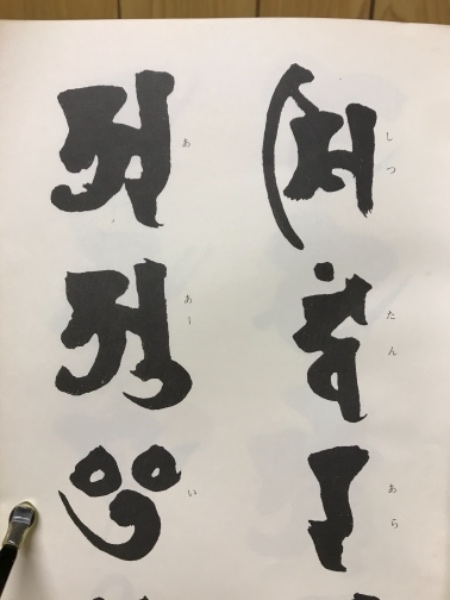 𑖭𑖰 しつ
𑖟𑖿𑖠𑖽 たん
𑖨 あら
𑖀 あ
𑖁 あー
𑖂 い